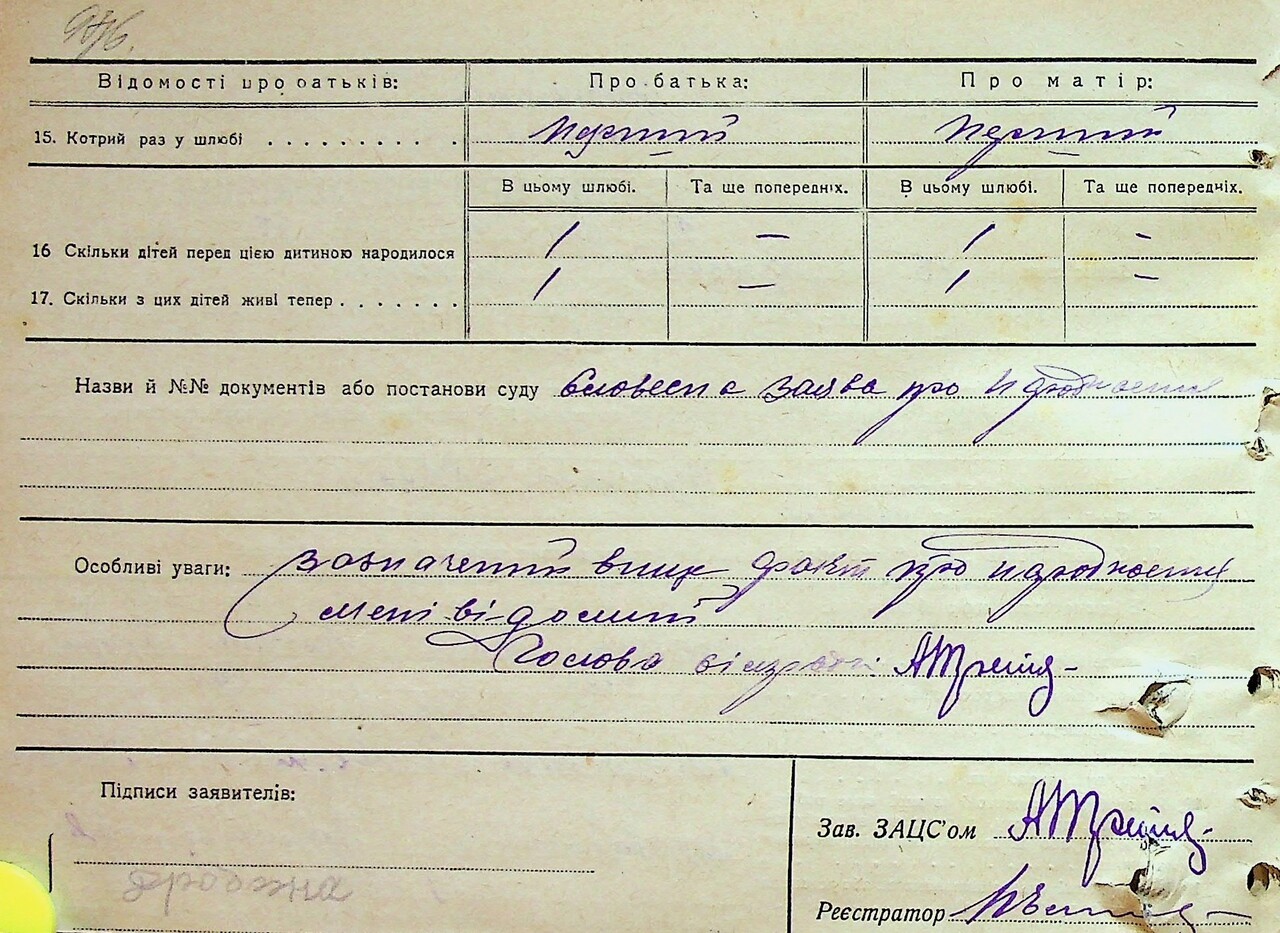 Відомості про батьків: Про батька: Про матір:
15. Котрий раз у шлюбі . . . . . . . . . . перший перший
В цьому шлюбі. Та ще попередніх. В цьому шлюбі. Та ще попередніх.
16 Скільки дітей перед цією дитиною народилося 1 — 1 -
17. Скільки з цих дітей живі тепер . . . . . . . 1 — 1 —
Назви й №№ документів або постанови суду Словесна заява про народження
Особливі уваги: зазначений вище факт про народження
мені відомий
Голова сільради
Підписи заявителів:
Зав. ЗАЦС'ом
Реєстратор